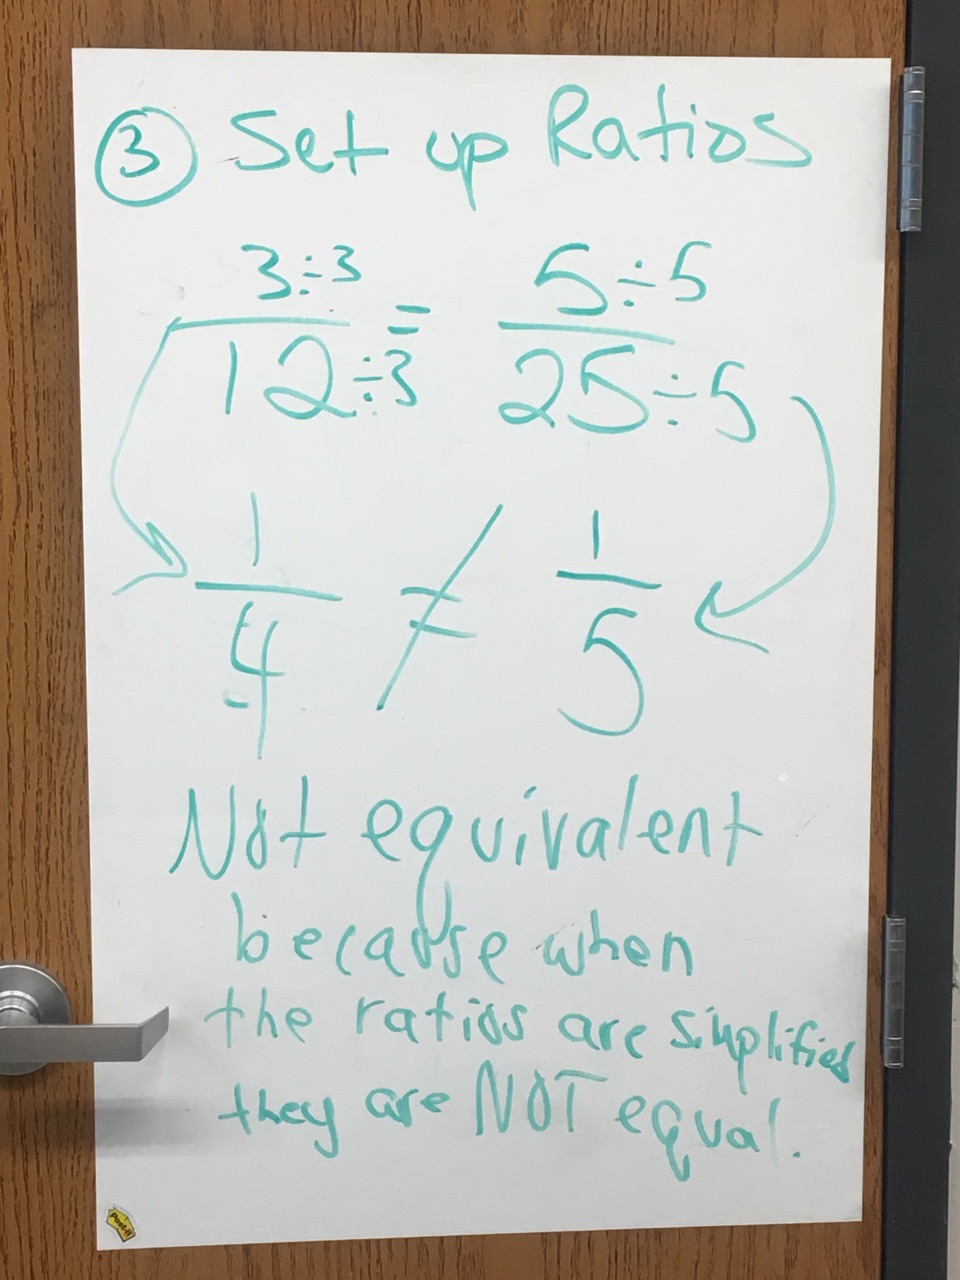 ③ Set up Ratios
3÷3 = 5÷5
12÷3 25÷5
1 ≠ 1
4 5
Not equivalent
because when
the ratios are simplified
they are NOT equal.